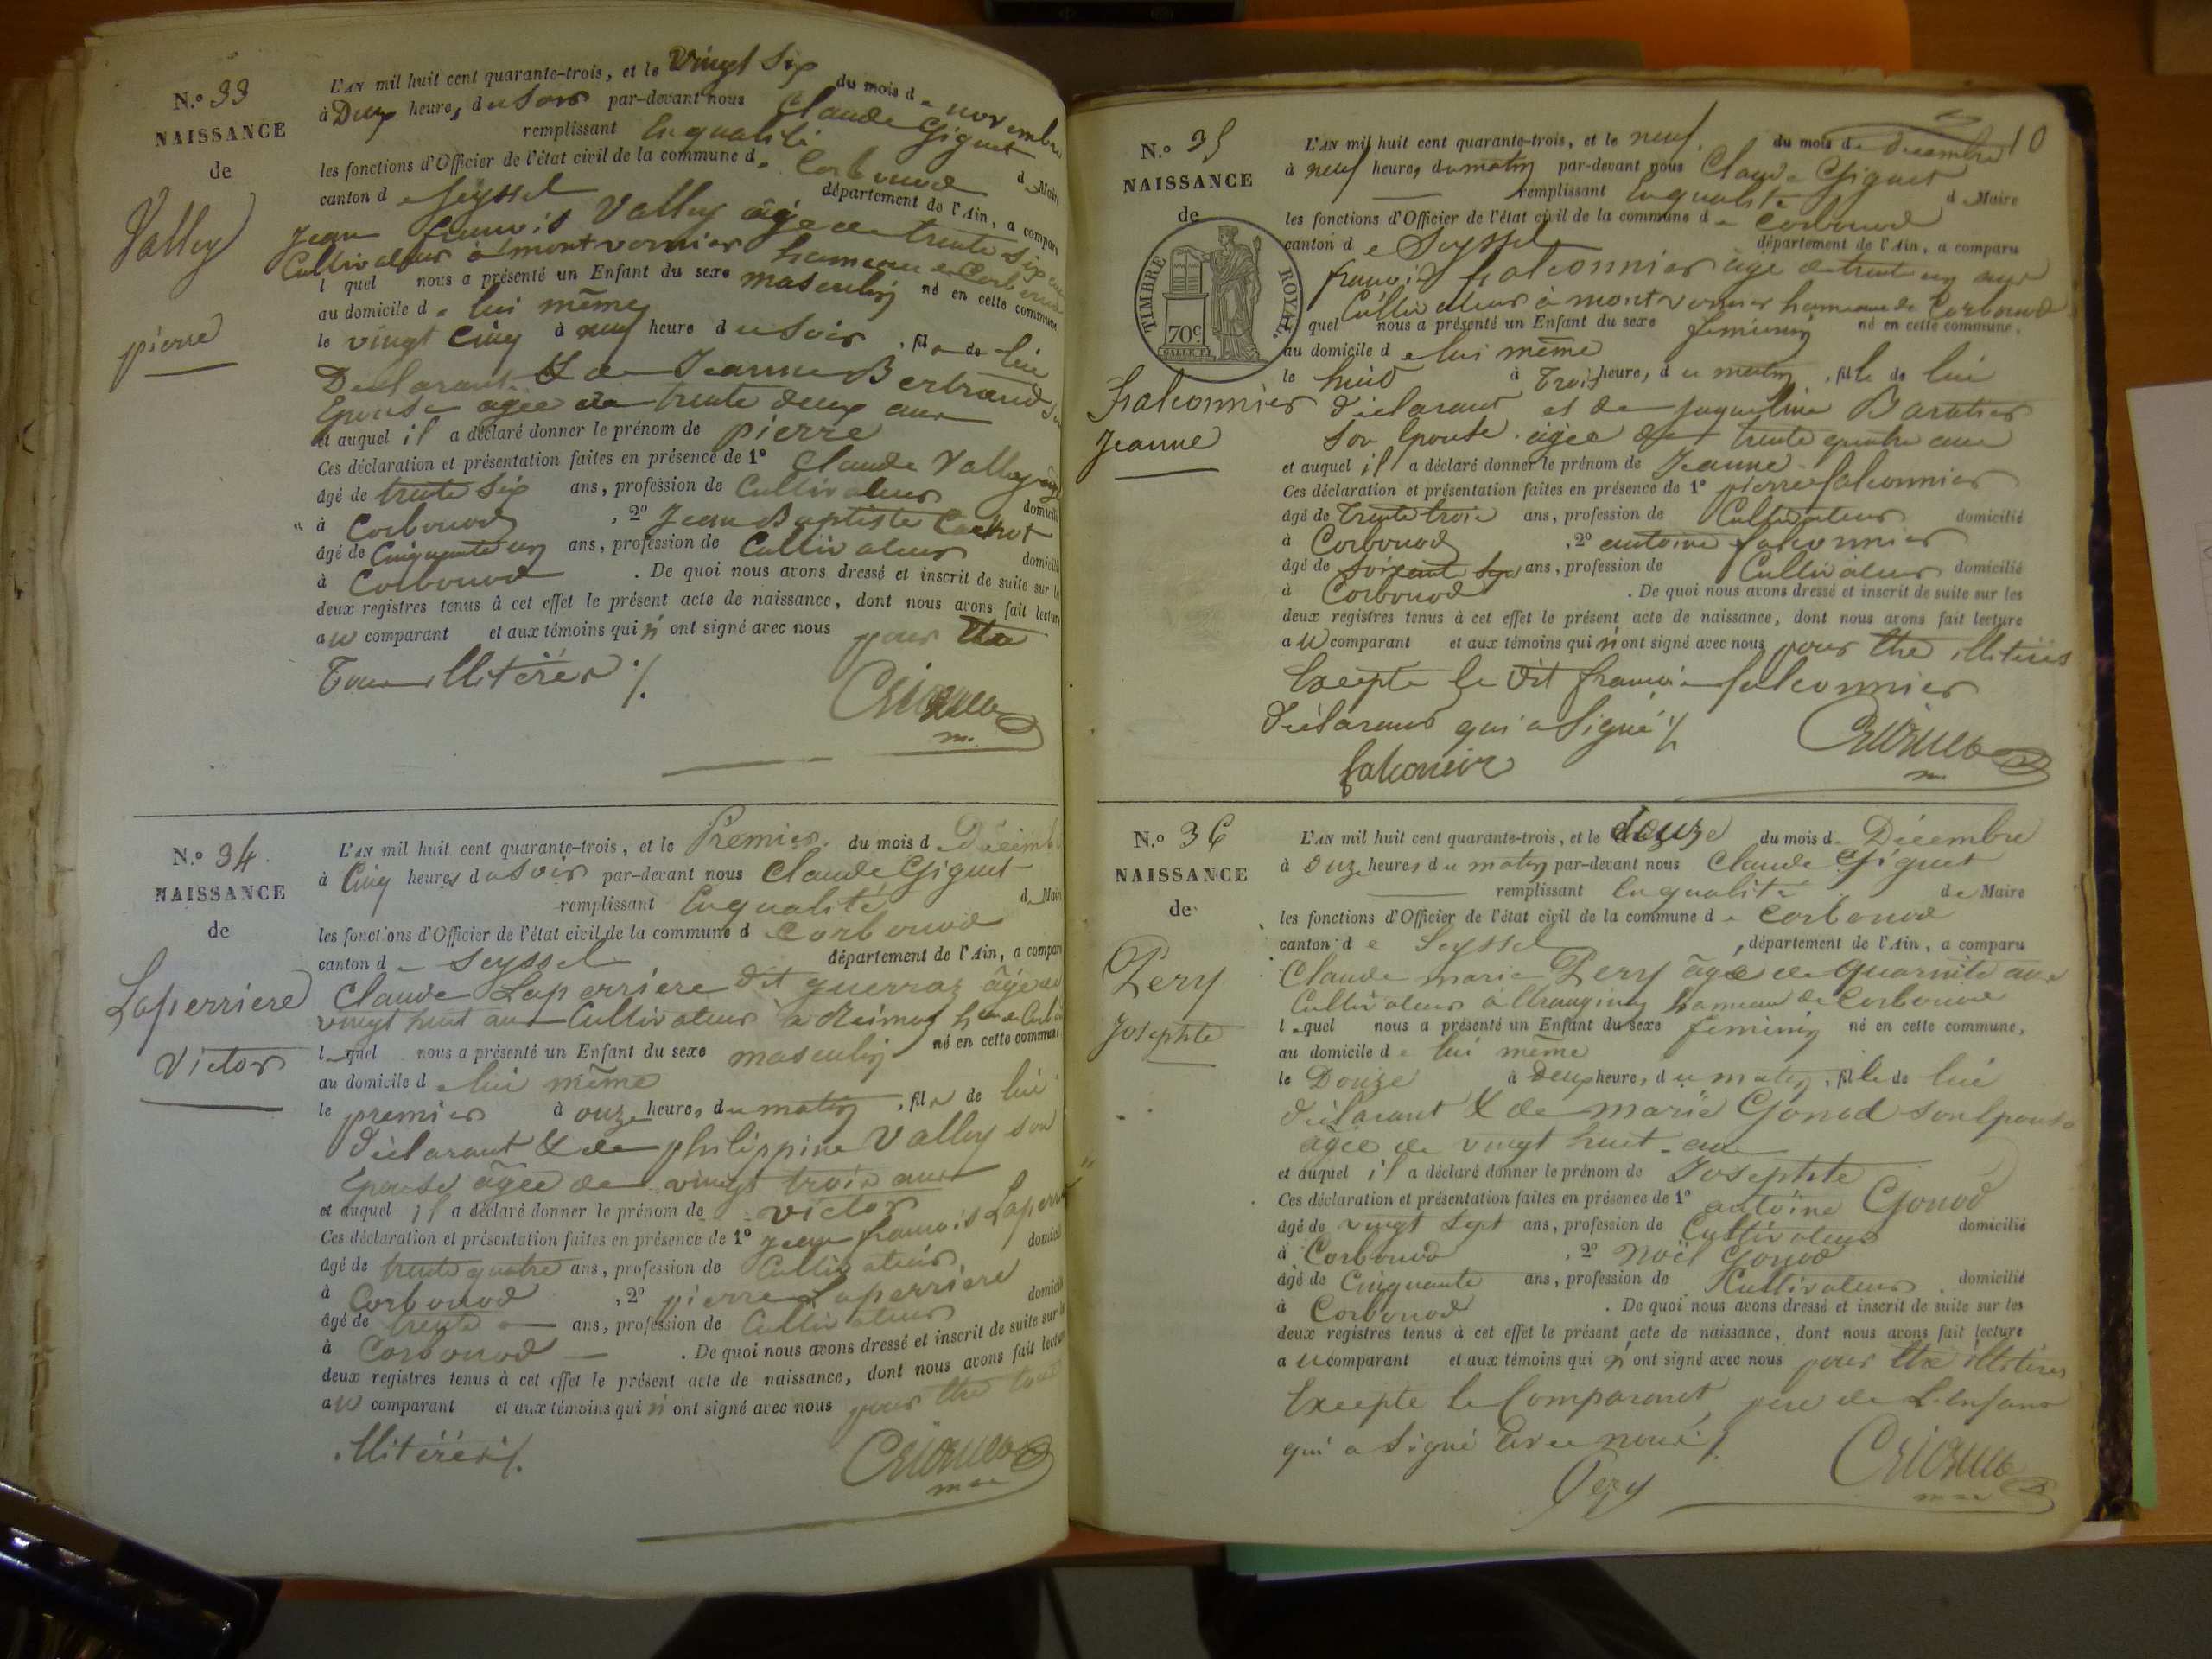 N.º 33
NAISSANCE
de
Valley
pierre
L'AN mil huit cent quarante-trois, et le Vingt Six du mois de novembre
à Deux heures du Soir par-devant nous Claude Giguet
remplissant En qualité de Maire
les fonctions d'Officier de l'état civil de la commune de Corbonod
canton de Seyssel département de l'Ain, a comparu
Jean francois Valley âgé de trente six ans
Cultivateur à montvernier hameau de Corbonod
l quel nous a présenté un Enfant du sexe masculin né en cette commune,
au domicile de lui même
le vingt Cinq à neuf heure du Soir, fils de lui
Déclarant & de Jeanne Bertrand Son
Epouse agée de trente deux ans
et auquel il a déclaré donner le prénom de pierre
Ces déclaration et présentation faites en présence de 1º Claude Valley
âgé de trente Six ans, profession de Cultivateur domicilié
à Corbonod, 2º Jean Baptiste Cachot
âgé de Cinquante un ans, profession de Cultivateur domicilié
à Corbonod. De quoi nous avons dressé et inscrit de suite sur les
deux registres tenus à cet effet le présent acte de naissance, dont nous avons fait lecture
au comparant et aux témoins qui n'ont signé avec nous pour être
Tous illitérés ./.
N.º 34
NAISSANCE
de
Laperriere
Victor
L'AN mil huit cent quarante-trois, et le Premier du mois de Décembre
à Cinq heures du Soir par-devant nous Claude Giguet
remplissant En qualité de Maire
les fonctions d'Officier de l'état civil de la commune de Corbonod
canton de Seyssel département de l'Ain, a comparu
Claude Laperriere dit guerraz âgé de
vingt huit ans Cultivateur à
lequel nous a présenté un Enfant du sexe masculin né en cette commune
au domicile de lui même
le premier à onze heures du matin, fils de lui
Déclarant & de philippine Valley son
Epouse âgée de vingt trois ans
et auquel il a déclaré donner le prénom de victor
Ces déclaration et présentation faites en présence de 1º Jean francois Laperriere
âgé de trente quatre ans, profession de Cultivateur domicilié
à Corbonod, 2º pierre Laperriere
âgé de trente ans, profession de Cultivateur domicilié
à Corbonod. De quoi nous avons dressé et inscrit de suite sur les
deux registres tenus à cet effet le présent acte de naissance, dont nous avons fait lecture
au comparant et aux témoins qui n'ont signé avec nous pour être tous
illitérés ./.
10
N.º 35
NAISSANCE
de
TIMBRE ROYAL
70c
Falconnier
Jeanne
L'AN mil huit cent quarante-trois, et le neuf du mois de Decembre
à neuf heures du matin par-devant nous Claude Giguet
remplissant En qualité de Maire
les fonctions d'Officier de l'état civil de la commune de Corbonod
canton de Seyssel département de l'Ain, a comparu
francois falconnier âgé de trente un ans
Cultivateur à montvernier hameau de Corbonod
quel nous a présenté un Enfant du sexe feminin né en cette commune,
au domicile de lui même
le huit à Trois heures, du matin, fille de lui
déclarant et de Jaqueline Baratier
Son Epouse agée de trente quatre ans
et auquel il a déclaré donner le prénom de Jeanne
Ces déclaration et présentation faites en présence de 1º pierre falconnier
âgé de Trente trois ans, profession de Cultivateur domicilié
à Corbonod, 2º antoine falconnier
âgé de ans, profession de Cultivateur domicilié
à Corbonod. De quoi nous avons dressé et inscrit de suite sur les
deux registres tenus à cet effet le présent acte de naissance, dont nous avons fait lecture
au comparant et aux témoins qui n'ont signé avec nous pour être illitérés
Excepté le dit francois falconnier
déclarant qui a Signé ./.
falconier
N.º 36
NAISSANCE
de
Pery
Josephte
L'AN mil huit cent quarante-trois, et le douze du mois de Décembre
à onze heures du matin par-devant nous Claude Giguet
remplissant En qualité de Maire
les fonctions d'Officier de l'état civil de la commune de Corbonod
canton de Seyssel, département de l'Ain, a comparu
Claude marie Pery âgé de quarante ans
Cultivateur à hameau de Corbonod
lequel nous a présenté un Enfant du sexe feminin né en cette commune,
au domicile de lui même
le Douze à Deux heures, du matin, fille de lui
déclarant & de marie Gonod son Epouse
âgée de vingt huit ans
et auquel il a déclaré donner le prénom de Josephte
Ces déclaration et présentation faites en présence de 1º antoine Gonod
âgé de vingt Sept ans, profession de Cultivateur domicilié
à Corbonod, 2º Noël Gonod
âgé de Cinquante ans, profession de Cultivateur domicilié
à Corbonod. De quoi nous avons dressé et inscrit de suite sur les
deux registres tenus à cet effet le présent acte de naissance, dont nous avons fait lecture
au comparant et aux témoins qui n'ont signé avec nous pour être illitérés
Excepté le Comparant pere de L'enfant
qui a Signé avec nous ./.
Pery